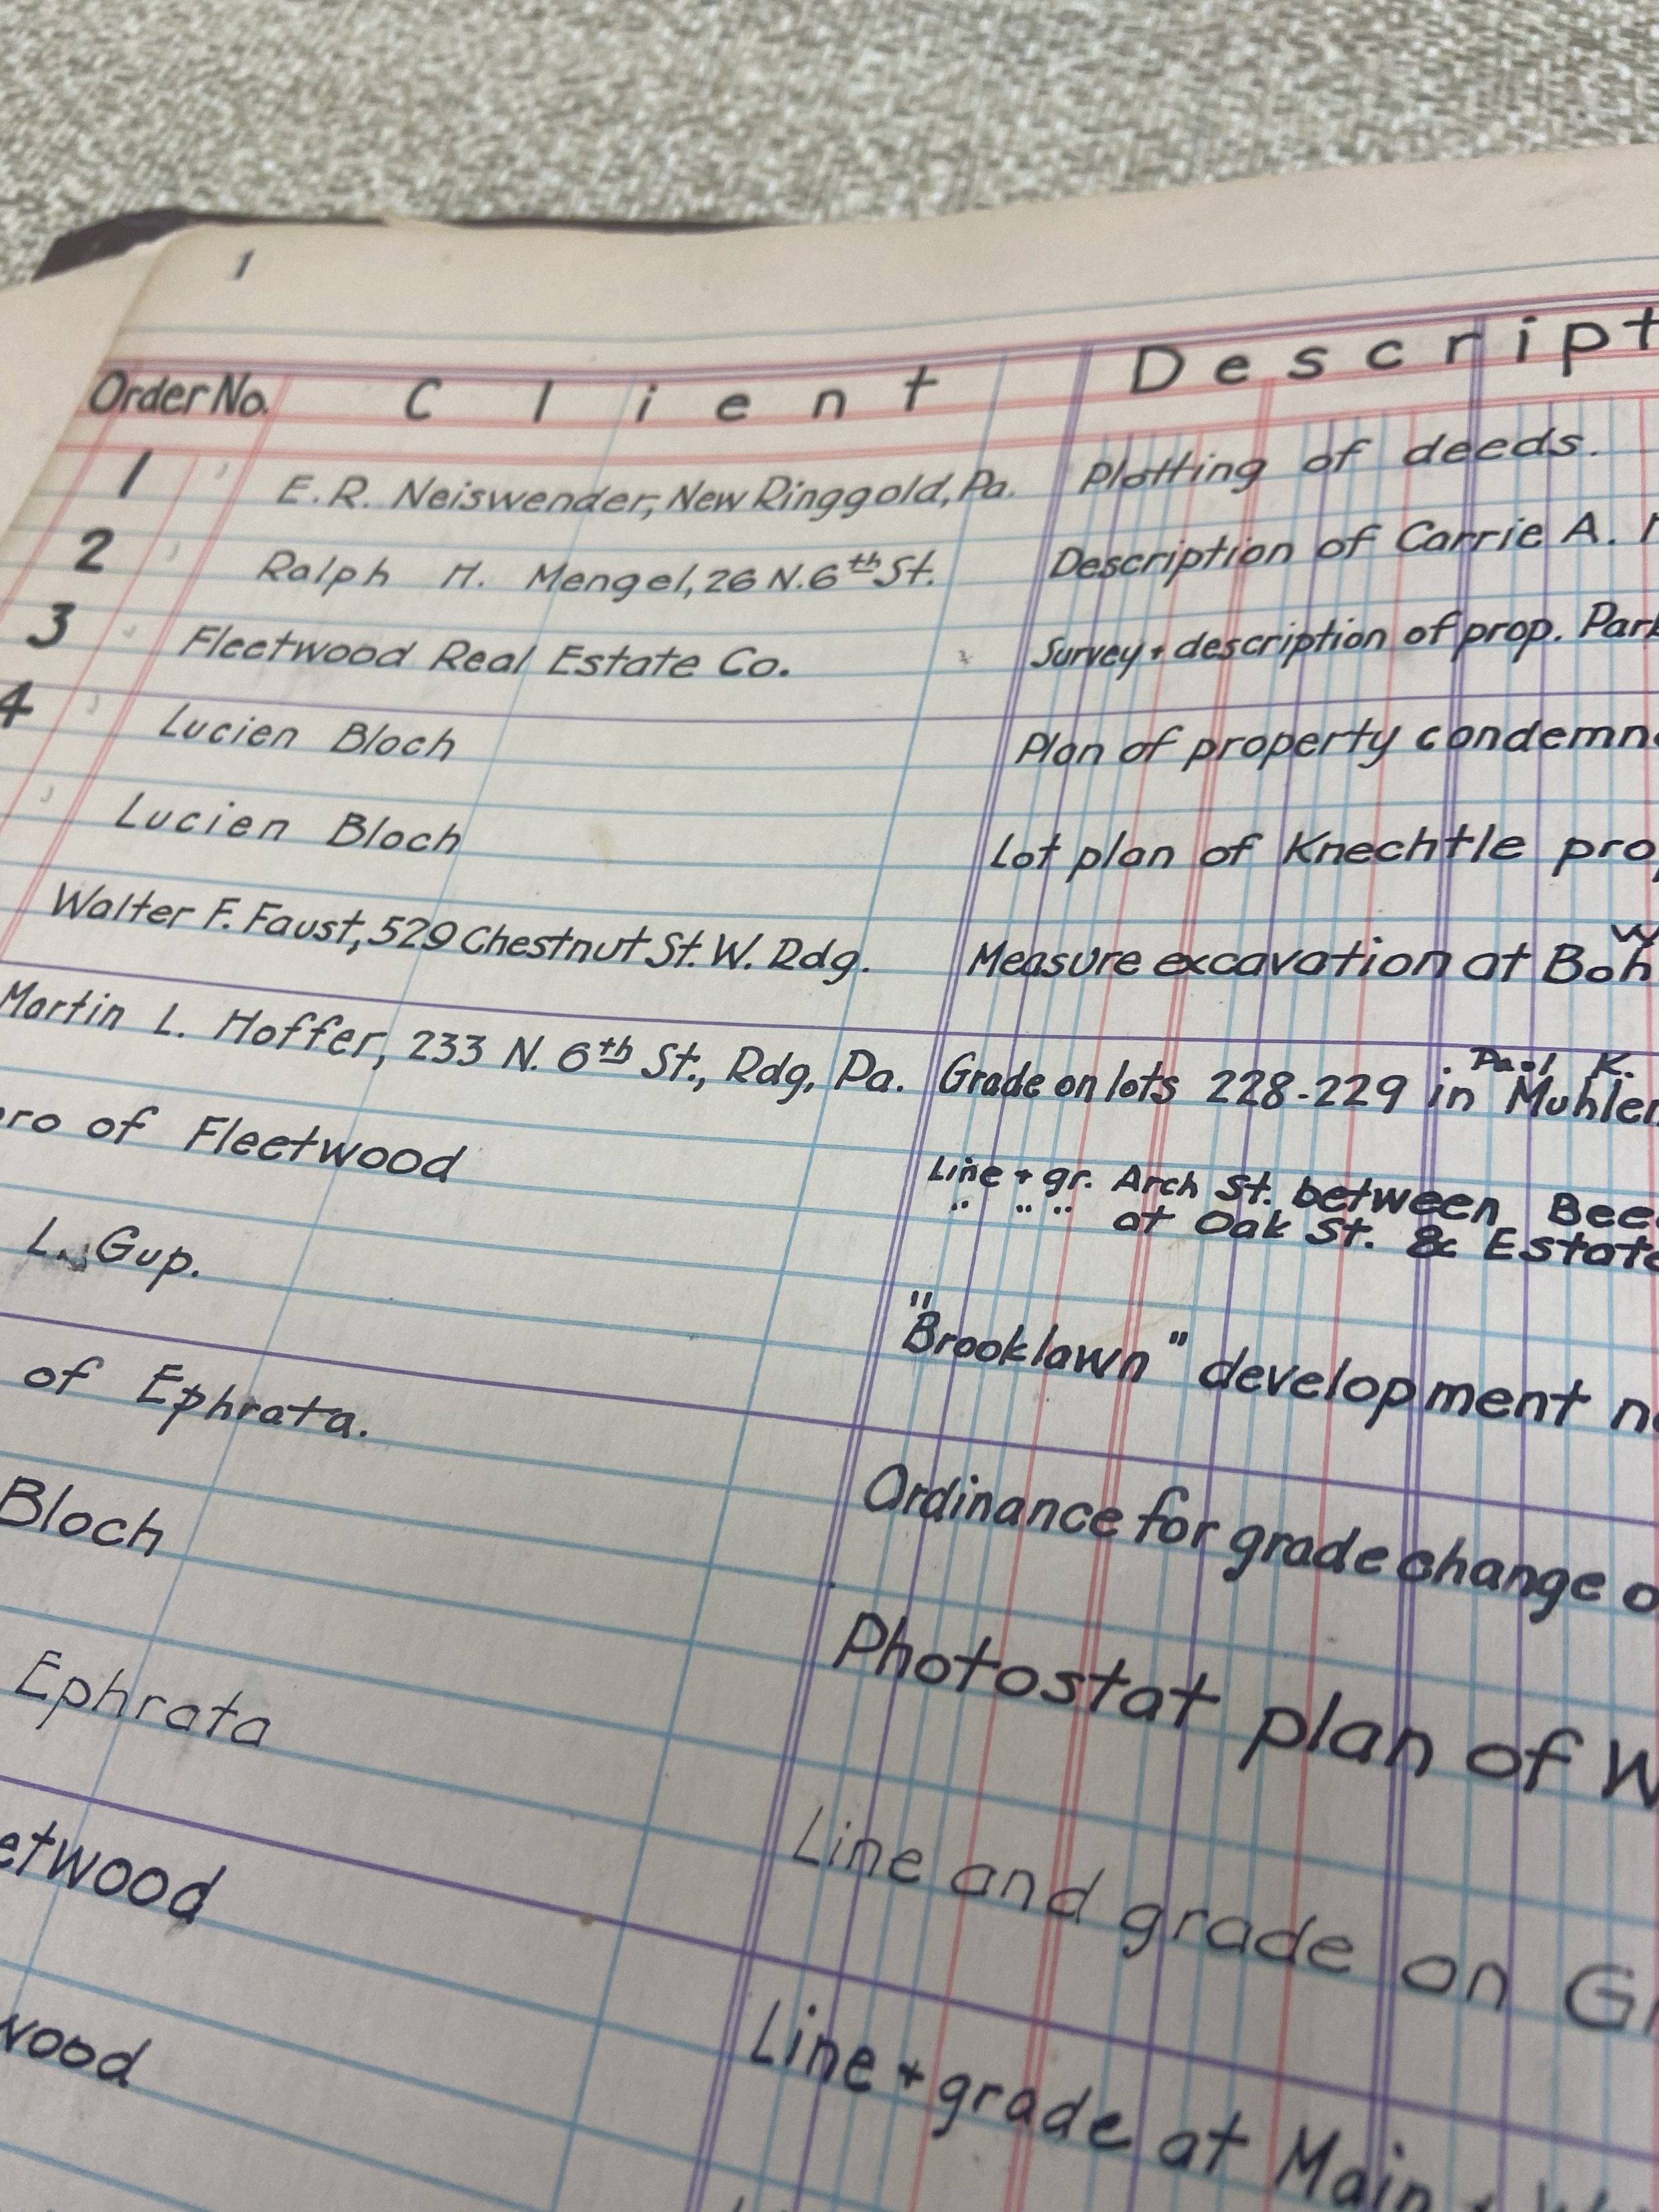 1
Order No. Client Descript
1 E. R. Neiswender, New Ringgold, Pa. Plotting of deeds.
2 Ralph H. Mengel, 26 N. 6th St. Description of Carrie A.
3 Fleetwood Real Estate Co. Survey + description of prop. Park
4 Lucien Bloch Plan of property condemn
Lucien Bloch Lot plan of Knechtle pro
Walter F. Faust, 529 Chestnut St. W. Rdg. Measure excavation at Boh
Martin L. Hoffer, 233 N. 6th St., Rdg, Pa. Grade on lots 228-229 in Muhlen
Paul K.
ro of Fleetwood Line + gr. Arch St. between Bee
" " " at Oak St. & Estate
L. Gup. "Brooklawn" development n
of Ephrata. Ordinance for grade change o
Bloch Photostat plan of W
Ephrata Line and grade on G
etwood Line + grade at Main +
wood